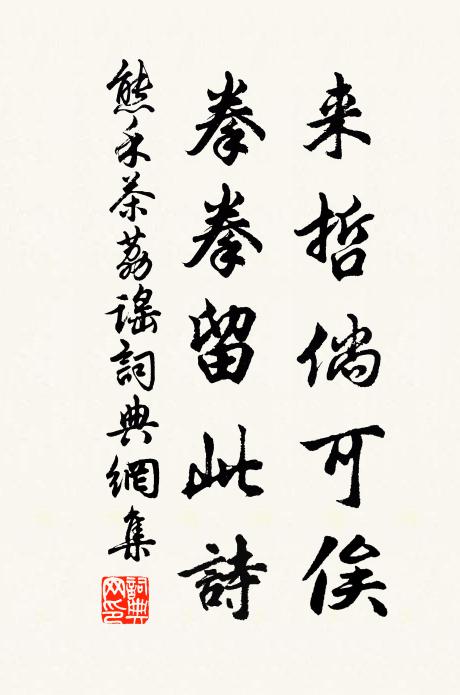 来哲倘可俟
拳拳留此詩
熊禾茶荔謠詞典網集
詞典網印